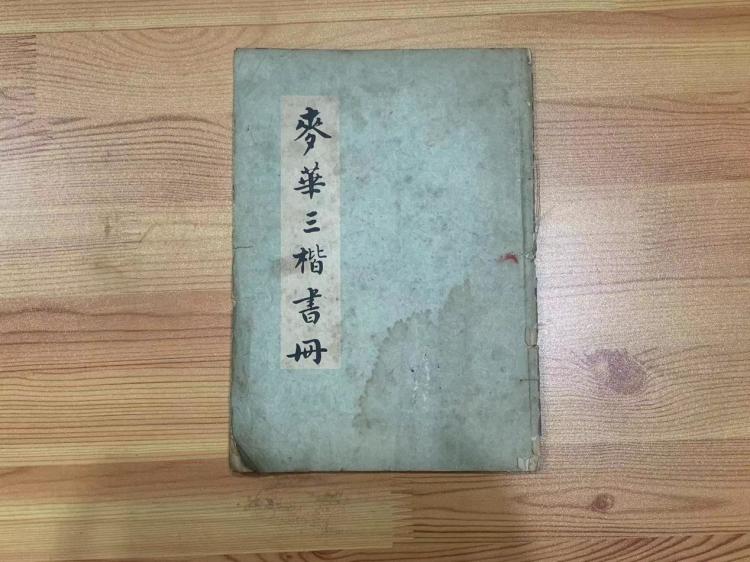 麥華三楷書冊